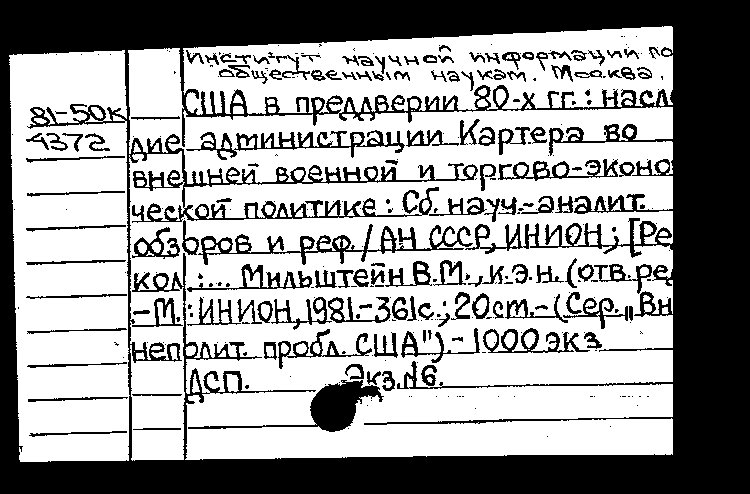 Институт научной информации по
общественным наукам. Москва.
81-50к США в преддверии 80-х гг.: насле
4372 дие администрации Картера во
внешней военной и торгово-эконо
ческой политике: Сб. науч.-аналит.
обзоров и реф./АН СССР, ИНИОН; [Ре
кол.:... Мильштейн В.М., к.э.н. (отв.ре
.-М.: ИНИОН, 1981.-361с.; 20cm.-(Сер. „Вн
неполит. пробл. США").- 1000 экз
ДСП. Экз.№6.